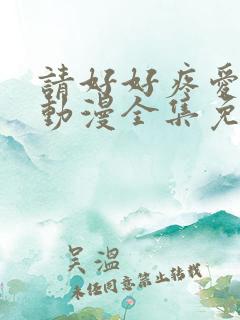 請好好疼愛
動漫全集免
吴溫
未任同意禁止转载